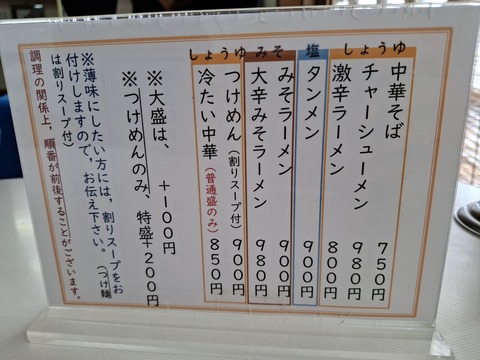 しょうゆ
中華そば 750円
チャーシューメン 980円
激辛ラーメン 800円
塩
タンメン 900円
みそ
みそラーメン 900円
大辛みそラーメン 980円
しょうゆ
つけめん(割りスープ付) 900円
冷たい中華(普通盛のみ) 850円
※大盛は、 +100円
※つけめんのみ、特盛+200円
※薄味にしたい方には、割りスープをお
付けしますので、お伝え下さい。(つけ麺
は割りスープ付)
調理の関係上、順番が前後することがございます。